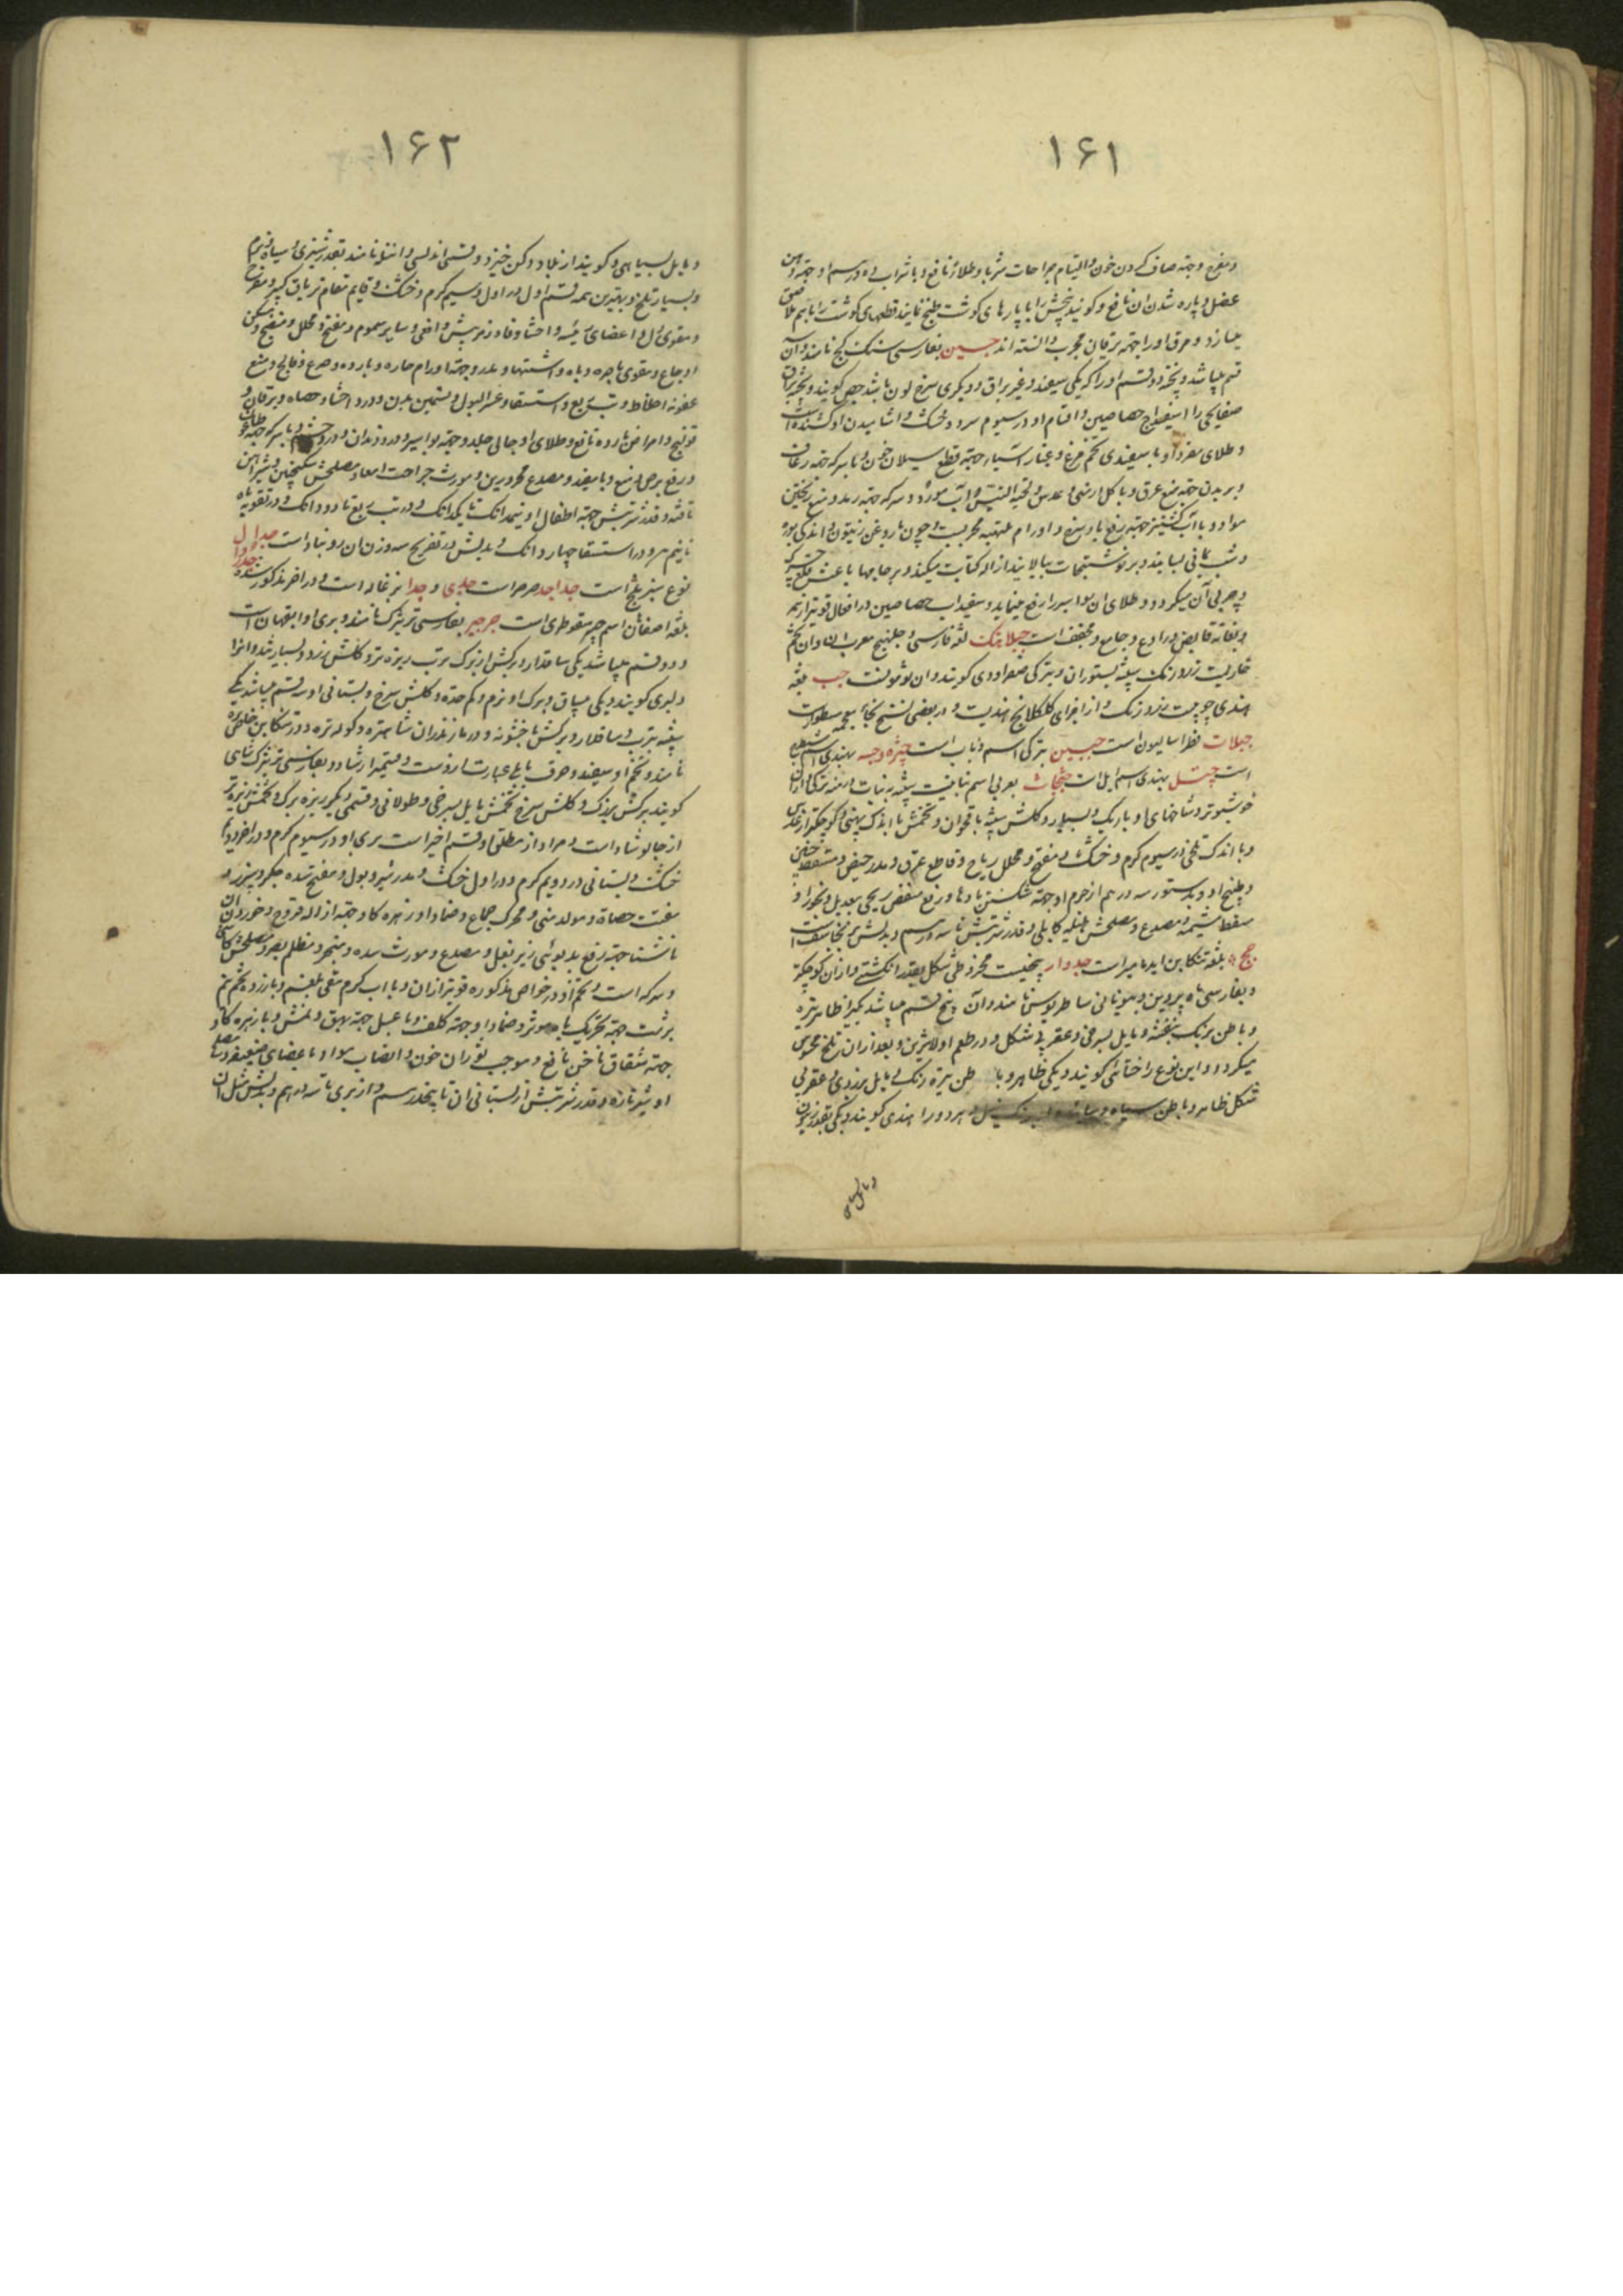 ۱۶۱
و مفرح و جهة صاف کردن خون و التیام جراحات شربا و طلاء نافع و با شراب ده درسم او جهة وهن
عضل و پاره شدن آن نافع و کویند بیخش را با پارهای کوشت طبخ نمایند قطعهای کوشت را باهم ملاصق
میسازد و عرق او را جهة یرقان مجرب دانسته اند جبسین بفارسی سنک کچ نامند و آن
قسم میباشد و پخته دو قسم او را که یکی سفید و غیر براق و دیکری سرخ لون باشد جص کویند و پخته براق
صفایحی را اسفیداج جصاصین و اقسام او در سیوم سرد و خشک و آشامیدن او کشنده است
و طلای مفرد او با سفیدی تخم مرغ و غبار آسیاء جهة قطع سیلان خون و با سرکه جهة رعاف
و بریدن جهة منع عرق و با کل ارمنی و عدس و لحیة التیس و آب مورد و سرکه جهة رمد و منع ریختن
مواد و با آب کشنیز جهة رفع باد سرخ و اورام ملتهبه مجربست و چون با روغن زیتون و اندکی بوره
و شب یمانی بسایند و بر نوشتجات بمالند ازاله کتابت میکند و بر جامها باعث قلع
و چربی آن میکردد و طلای آن بواسیر را رفع مینماید و سفیداب جصاصین در افعال قویتر از همه
و بغایة قابض و رادع و جامع و مجفف است جبلاهنک لغة فارسی و جلبهنج معرب آن و آن تخم
خاریست زرد رنک بیشه بستوران و بترکی صفراودی کویند و آن توثونست جب بلغة
هندی چوبیست زرد رنک و از اجزای کلکلانج هندیست و در بعضی نسخ بخاء معجمه مسطورست
جبلات فطراسالیون است جبیین بترکی اسم ذباب است چتره و جسه بهندی اسم شیطرج
است چتیل بهندی اسم ایل است جثجاث بعربی اسم نباتیست بیشه به نبات درمنه ترکی و از آن
خوشبوتر و شاخهای او باریک و بسیار و کلش بیشه باقحوان و تخمش با اندک پهنی و کوچکتر از خردل
و با اندک تلخی در سیوم کرم و خشک و مفتح و محلل ریاح و قاطع عرق و مدر حیض و مسقط جنین
و طبیخ او و بدستور سه درهم از جرم او جهة شکستن بادها و رفع مغص ریحی بیعدیل و بخور او
مسقط مشیمه و مصدع و مصلحش هلیله کابلی و قدر شربتش تا سه درسم و بدلش برنجاسف است
جج بلغة تنکابن اید نامبر است جدوار بیخیست مخروطی شکل بقدر انکشتی و از آن کوچکتر
و بفارسی ماه پروین و بیونانی ساطریوس نامند و آن پنج قسم میباشد یکی را ظاهر تیره
و باطن برنک بنفشه و مایل بسرخی و عقربی شکل و در طعم اولا شیرین و بعد از آن تلخ محسوس
میکردد و این نوع را خطائی کویند و یکی ظاهر و باطن تیره رنک و مایل بزردی و عقربی
شکل ظاهر و باطن سیاه و هر دو را هندی کویند و یکی بقدر زیتون
و مایل بسیاهی
۱۶۲
و مایل بسیاهی و کویند از بلاد دکن خیزد و قسمی اندلسی و انتله نامند بقدر شبری و سیاه و نرم
و بسیار تلخ و بهترین همه قسم اول و در اول سیم کرم و خشک و قایم مقام تریاق کبیر و مفرح
و مقوی دل و اعضای رئیسه و احشا و فادزهر بیش و افعی و سایر سموم و مفتح و محلل و منضج و مسکن
اوجاع و مقوی باصره و باه و اشتها و مدر و جهة اورام حاره و بارده و صرع و فالج و منع
عفونة اخلاط و تب ربع و استسقا و عسر البول و تسمین بدن و درد احشا و حصاه و یرقان و
قولنج و امراض بارده نافع و طلای او جالی جلد و جهة بواسیر و درد دندان و درد چشم و با سرکه جهة
و رفع برص و منع وبا مفید و مصدع محرورین و مورث جراحت امعاء و مصلحش سکنجبین و شیر آهن
تافته و قدر شربتش جهة اطفال از نیمدانک تا یکدانک و در تب ربع تا دو دانک و در تقویة باه
تا نیم درم و در استسقا چهار دانک و بدلش در تفریح سه وزن آن زرنباد است جداول
نوع سبز بنج است جداجد صرصر است جدی و جدا بزغاله است و در آخر مذکور شده
بلغة اصفهان اسم صبر سقوطری است جرجیر بفارسی تره تیزک نامند و بری او ایهقان است
و دو قسم میباشد یکی ساقدار و برکش از برک ترب ریزه تر و کلش زرد و بسیار تند و آنرا
دلبری کویند و یکی بیساق و برک او نرم و کم حدة و کلش سرخ و بستانی او سه قسم میباشد یکی
بیشه بترب و ساقدار و برکش ناخشونه و در مازندران شاهتره و کوله تره و در تنکابن
نامند و تخم او سفید و حرف بابلی عبارت از وست و قسمیرا رشاد و بفارسی تره تیزک شاهی
کویند برکش بزرک و کلش سرخ تخمش مایل بسرخی و طولانی و قسمی دیکر ریزه برک و تخمش ریزه تر
از حب الرشاد است و مراد از مطلق او قسم اخیر است بری او در سیوم کرم و در آخر دویم
خشک و بستانی در دویم کرم و در اول خشک و مدر شیر و بول و مفتح سده جکر و سپرز و
مفتت حصاة و مولد منی و محرک جماع و ضماد او با زهره کاو جهة ازاله قروح و خوردن آن
ناشتا جهة رفع بدبوئی زیر بغل و مصدع و مورث سده و مبخر و مظلم بصر و مصلحش کاسنی
و سرکه است و تخم او در خواص مذکوره قویتر از آن و با آب کرم مقی بلغم و با زرده تخم نیم
برشت جهة تحریک باه مؤثر و ضماد او جهة کلف و با عسل جهة بهق و نمش و با زهره کاو
جهة شقاق ناخن نافع و موجب ثوران خون و انصباب مواد باعضای ضعیفه و مصلح
او شیر تازه و قدر شربتش از بستانی آن تا پنجدرسم و از بری تا سه درهم و بدلش مثل آن